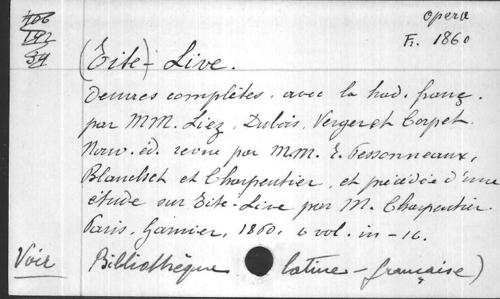 406
192
34
Opera
Fr. 1860
(Tite) - Live.
Oeuvres complètes, avec la trad. franç.
par MM. Liez, Dubois, Verger et Corpet.
Nouv. éd. revue par MM. E. Pessonneaux,
Blanchet et Charpentier, et précédée d'une
étude sur Tite-Live par M. Charpentier.
Paris, Garnier, 1860, 6 vol. in-16.
Voir Bibliothèque latine-française)